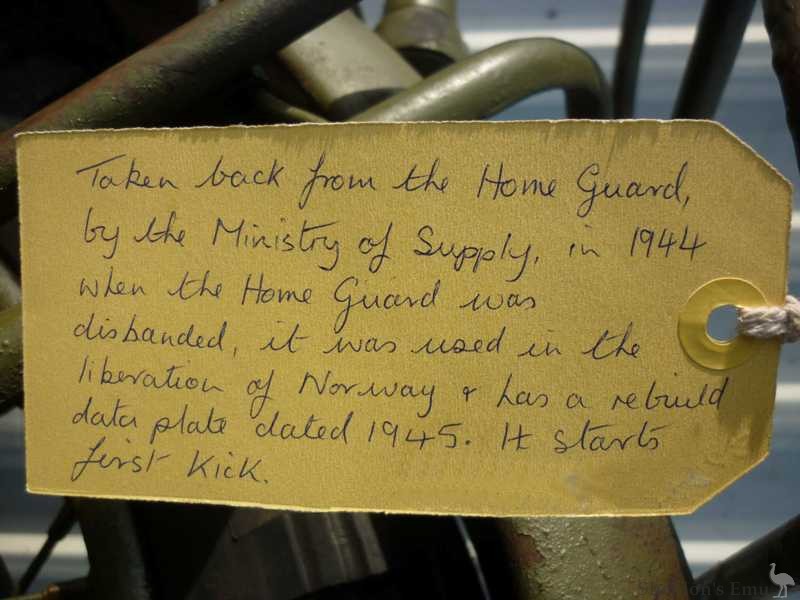 Taken back from the Home Guard,
by the Ministry of Supply, in 1944
when the Home Guard was
disbanded, it was used in the
liberation of Norway & has a rebuild
data plate dated 1945. It starts
first kick.